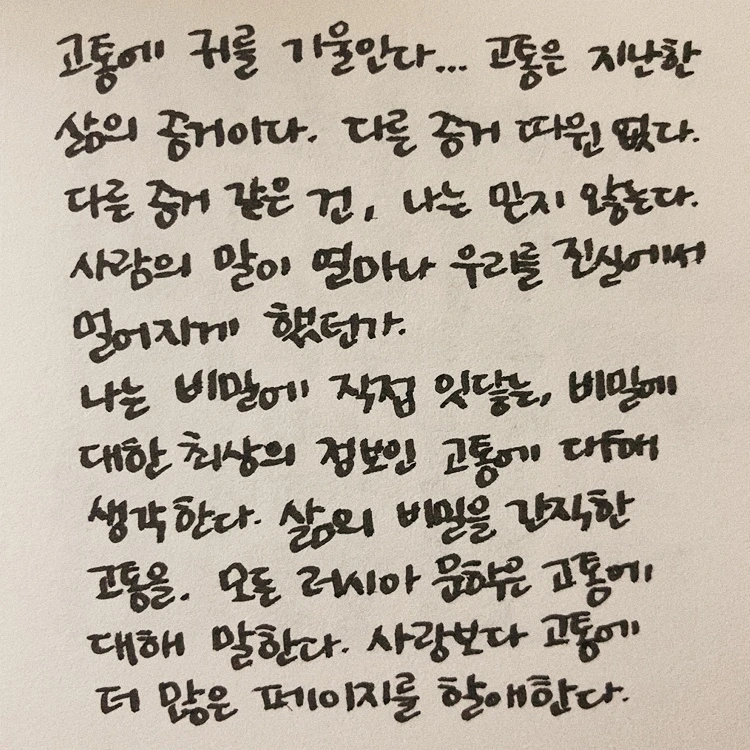 고통에 귀를 기울인다... 고통은 지난한
삶의 증거이다. 다른 증거 따윈 없다.
다른 증거 같은 건, 나는 믿지 않는다.
사람의 말이 얼마나 우리를 진실에서
멀어지게 했던가.
나는 비밀에 직접 잇닿는, 비밀에
대한 최상의 정보인 고통에 대해
생각한다. 삶의 비밀을 간직한
고통을. 모든 러시아 문학은 고통에
대해 말한다. 사랑보다 고통에
더 많은 페이지를 할애한다.